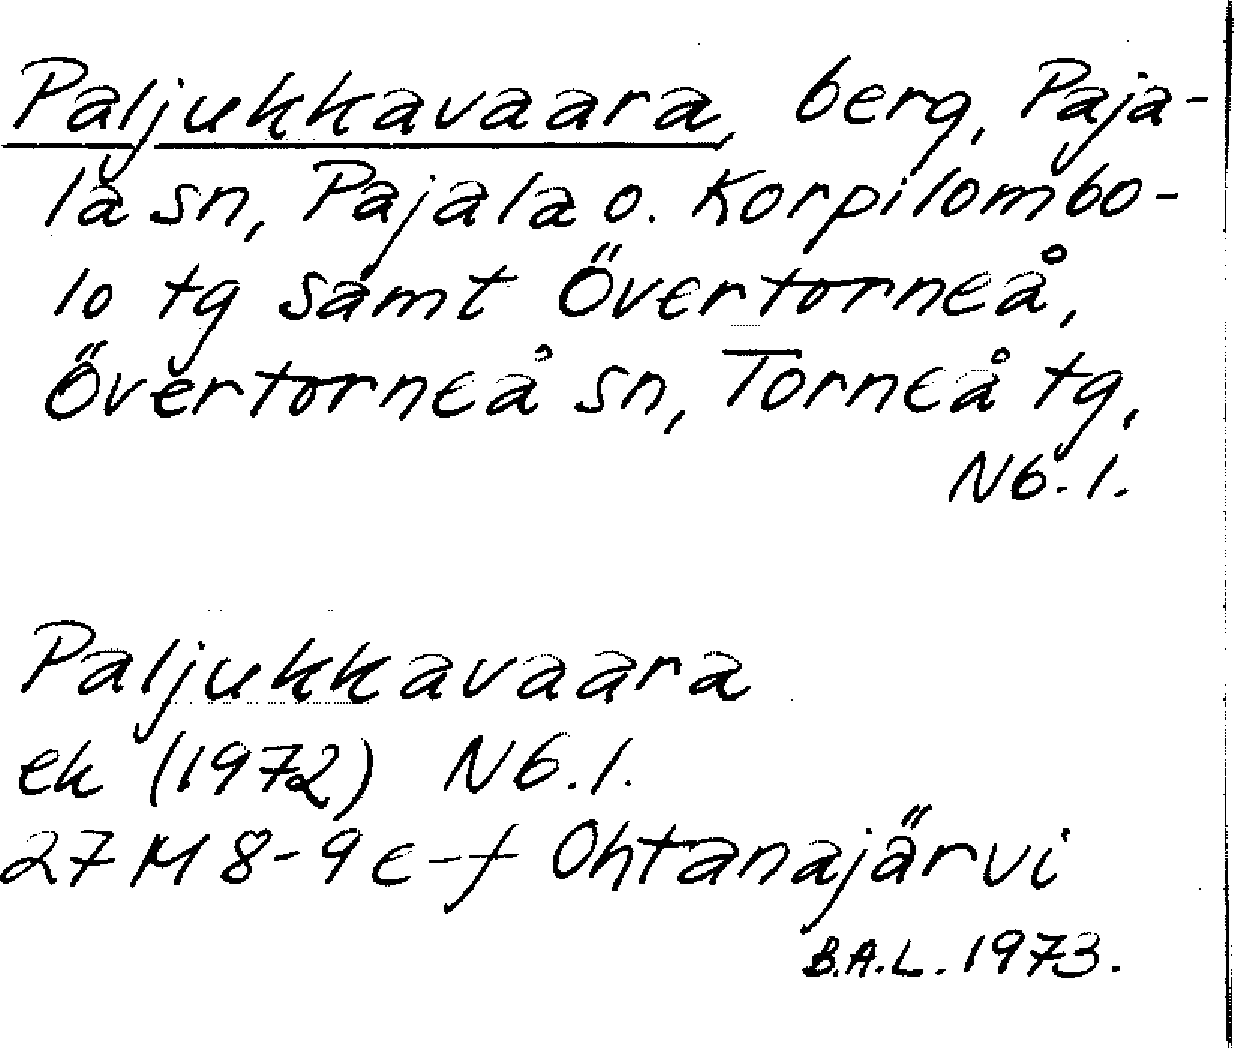 Paljukkavaara, berg, Paja-
la sn, Pajala o. Korpilombo-
lo tg samt Övertorneå,
Övertorneå sn, Torneå tg,
Nb. l.
Paljukkavaara
ek (1972) Nb. l.
27 M 8-9 e-f Ohtanajärvi
B.A.L. 1973.